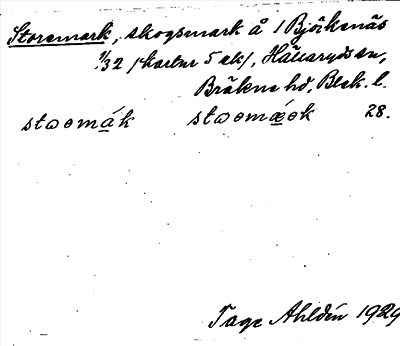 Storemark, skogsmark å 1 Björkenäs
1/32 /kartur 5 ek/, Hällaryds sn,
Bräkne hd, Blek. l.
stωomák stωomǽok 28.
Tage Ahldin 1929